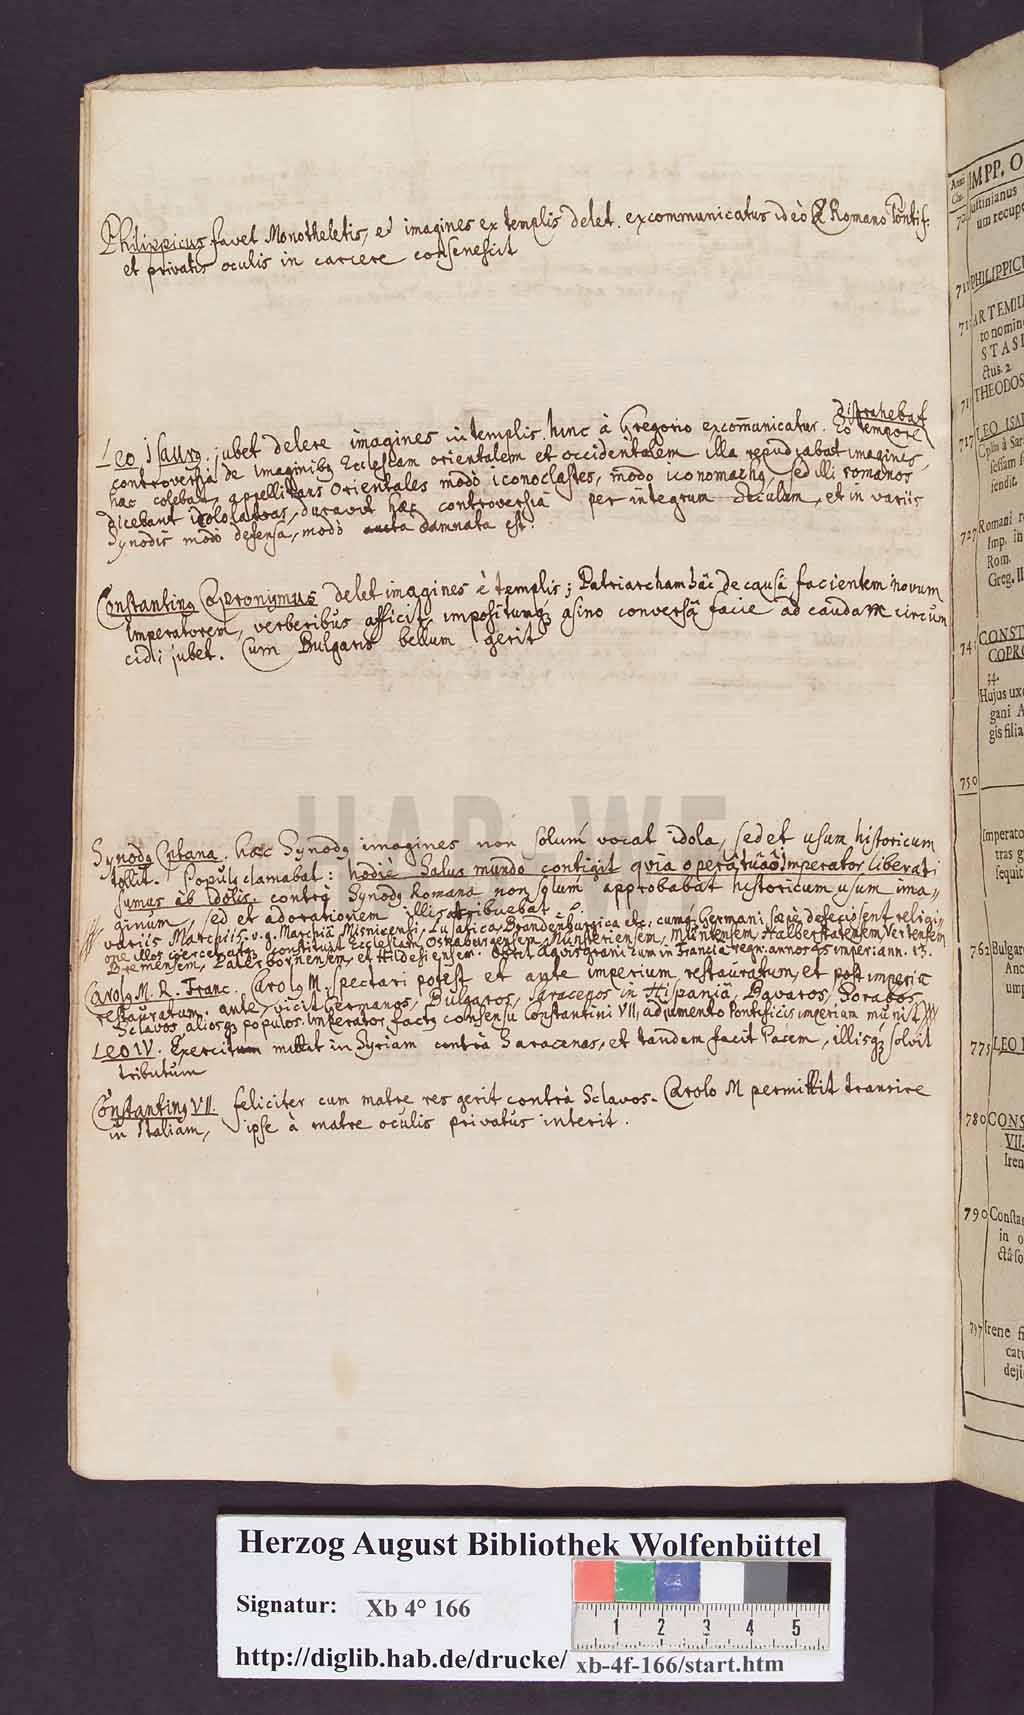 Philippicus favet Monotheletis, et imagines ex templis delet. excommunicatus ideò à Romano Pontif.
et privatis oculis in carcere consenescit
distrahebat
Leo Isaurꝰ jubet delere imagines in templis. hinc à Gregorio excom̄unicatur. Eo tempore
controversia de imaginibꝰ Ecclesiam orientalem et occidentalem illa repudiabat imagines,
hæc colebat, appellitans Orientales modò iconoclastes, modo iconomachꝰ, sed illi romanos
dicebant idololatras, duravit hæc controversia per integrum seculum, et in variis
Synodis modò defensa, modò damnata est.
Constantinꝰ Copronymus delet imagines è templis; Patriarcham hāc de causâ facientem novum
Imperatorem, verberibus afficit, impositumqꝫ asino conversâ facie ad caudam circum
cidi jubet. Cum Bulgaris bellum gerit
Synodꝰ Cptana. hæc Synodꝰ imagines non solum vocat idola, sed et usum historicum
tollit. Populꝰ clamabat: hodie Salus mundo contigit qvia operâ tuâ ô Imperator liberati
sumus ab idolis. contrà Synodꝰ Romana non solum approbabat historicum usum ima„
ginum, sed et adorationem illis tribuebat
variis Marchiis. v.g. Marchiâ Misnicensi, Lusatica, Brandenburgica etc. cumqꝫ Germani sæpè defecissent religi„
one illos coercenturꝰ constituit Ecclesiam Osnaburgensem, Munsteriensem, Mindensem, Halberstatensem, Verdensem
Bremensem, Paterbornensem, et Hildesiensem. obiit Aqvisgrani cum in Francia regn. annos 45 imper. ann. 13.
Carolꝰ M. R. Franc. Carolꝰ M. spectari potest et ante imperium restauratum, et post imperiū
restauratum. ante, vicit Germanos, Bulgaros, Saracenos in Hispaniâ, Bavaros, Sorabos
Sclavos, aliosqꝫ populos. Imperator factꝰ consensu Constantini VII, adjumento Pontificis imperium munit
Leo IV. Exercitum mittit in Syriam contra Saracenos, et tandem facit Pacem, illisqꝫ solvit
tributum
Constantinꝰ VII. feliciter cum matre res gerit contrà Sclavos. Carolo M permittit transire
in Italiam, ipse à matre oculis privatus interit.
IMPP. O
Anni
Justinianus
um recupe
PHILIPPIC
ARTEMIU
to nomin
STASI
ctus. 2
THEODOS
717 LEO ISA
Cplis à Sar
sessam
sendit.
727 Romani
Imp. in
Rom.
Greg. II
CONST
COPRO
34.
Hujus uxo
gani A
gis filia
750
Imperato
tras g
sequit
762 Bulgar
Anc
ump
775 LEO
780 CONS
VII.
Iren
790 Constan
in o
ctâ so
797 Irene fi
catu
deji
HAB-WF
Herzog August Bibliothek Wolfenbüttel
Signatur: Xb 4° 166
1 2 3 4 5
http://diglib.hab.de/drucke/ xb-4f-166/start.htm